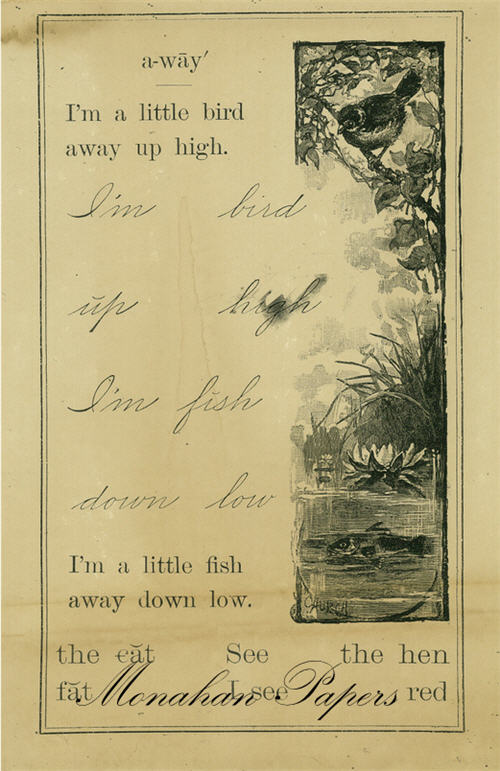 a-wāy′
I'm a little bird
away up high.
I'm bird
up high
I'm fish
down low
I'm a little fish
away down low.
the căt See the hen
făt I see red
Monahan Papers